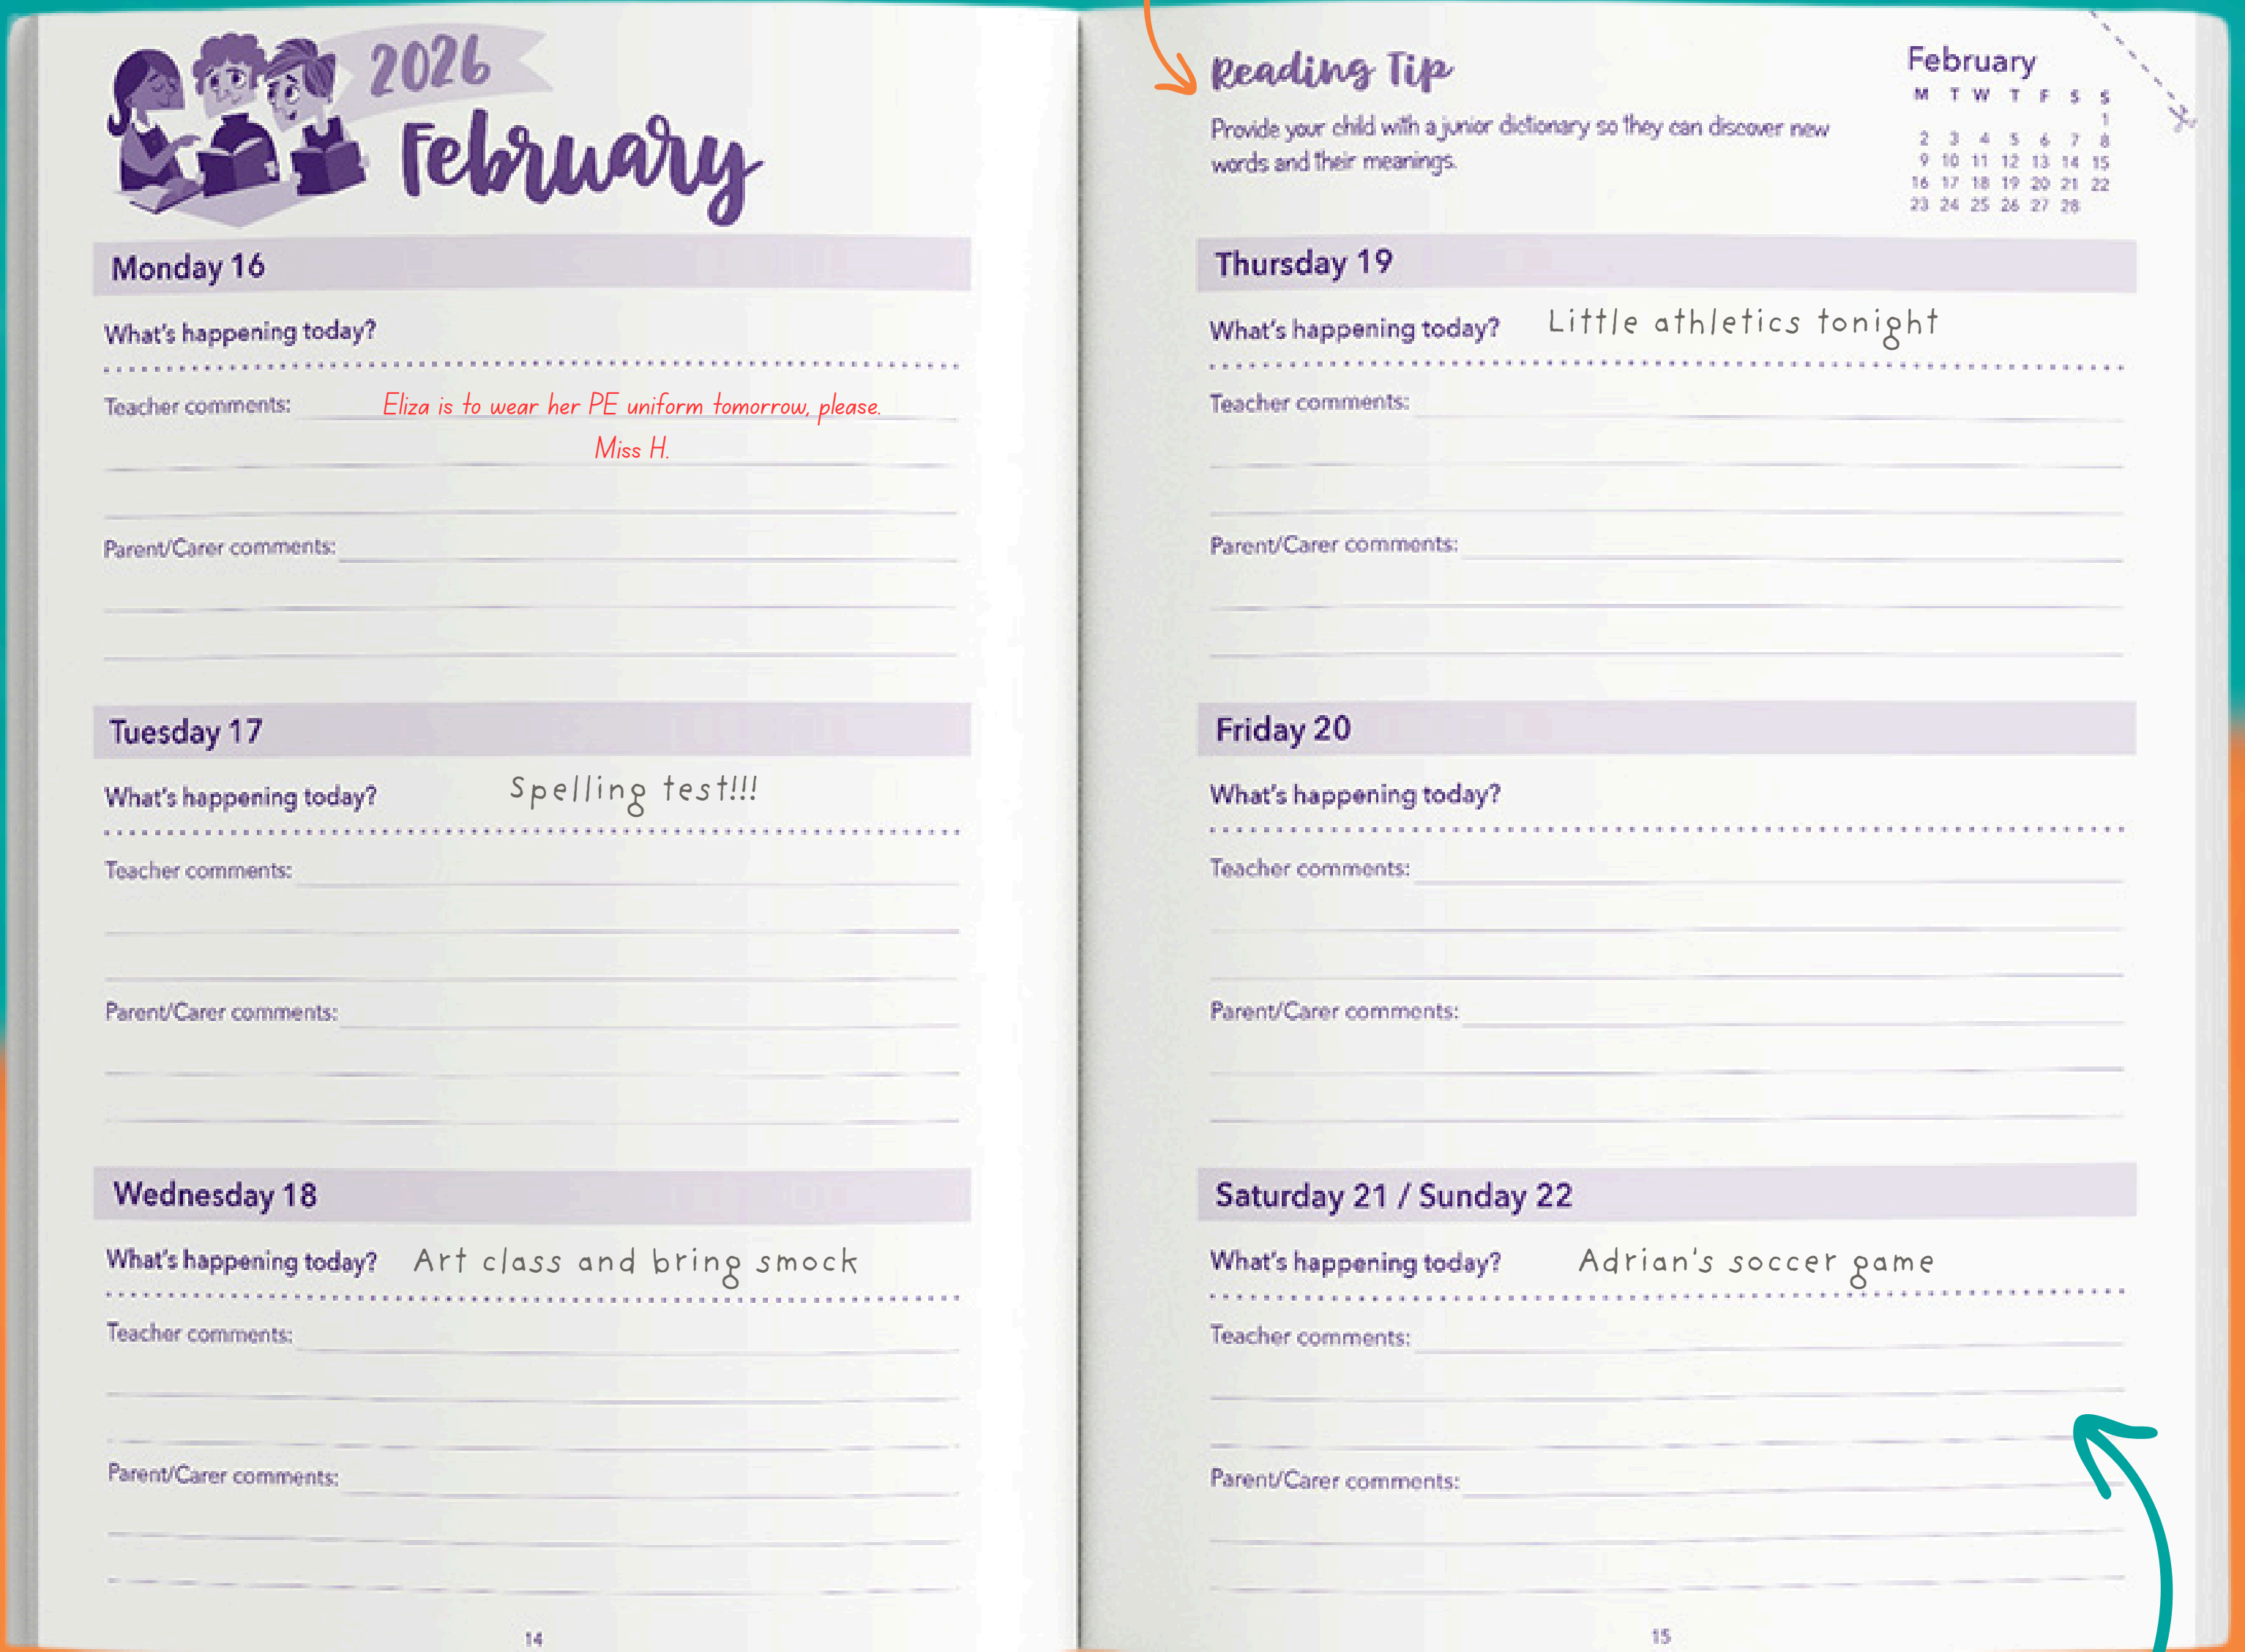 2026
February
Monday 16
What's happening today?
Teacher comments: Eliza is to wear her PE uniform tomorrow, please.
Miss H.
Parent/Carer comments:
Tuesday 17
What's happening today? Spelling test!!!
Teacher comments:
Parent/Carer comments:
Wednesday 18
What's happening today? Art class and bring smock
Teacher comments:
Parent/Carer comments:
14
Reading Tip
Provide your child with a junior dictionary so they can discover new
words and their meanings.
February
M T W T F S S
1
2 3 4 5 6 7 8
9 10 11 12 13 14 15
16 17 18 19 20 21 22
23 24 25 26 27 28
Thursday 19
What's happening today? Little athletics tonight
Teacher comments:
Parent/Carer comments:
Friday 20
What's happening today?
Teacher comments:
Parent/Carer comments:
Saturday 21 / Sunday 22
What's happening today? Adrian's soccer game
Teacher comments:
Parent/Carer comments:
15